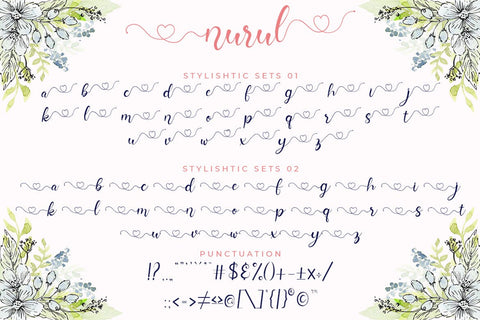 nurul
STYLISHTIC SETS 01
a b c d e f g h i j
k l m n o p q r s t
u v w x y z
STYLISHTIC SETS 02
a b c d e f g h i j
k l m n o p q r s t
u v w x y z
PUNCTUATION
!? #$€%()+-±×÷/
:;<=>≠≤≥@[\]^{|}